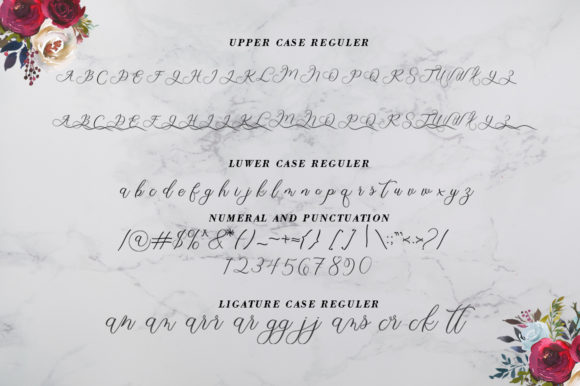 UPPER CASE REGULER
A B C D E F G H I J K L M N O P Q R S T U V W X Y Z
A B C D E F G H I J K L M N O P Q R S T U V W X Y Z
LUWER CASE REGULER
a b c d e f g h i j k l m n o p q r s t u v w x y z
NUMERAL AND PUNCTUATION
/@#$%^&*()_-~+={} [ ] | \ : ; "' < . > ? /
1 2 3 4 5 6 7 8 9 0
LIGATURE CASE REGULER
an an arr ar gg jj ans cr ck tt